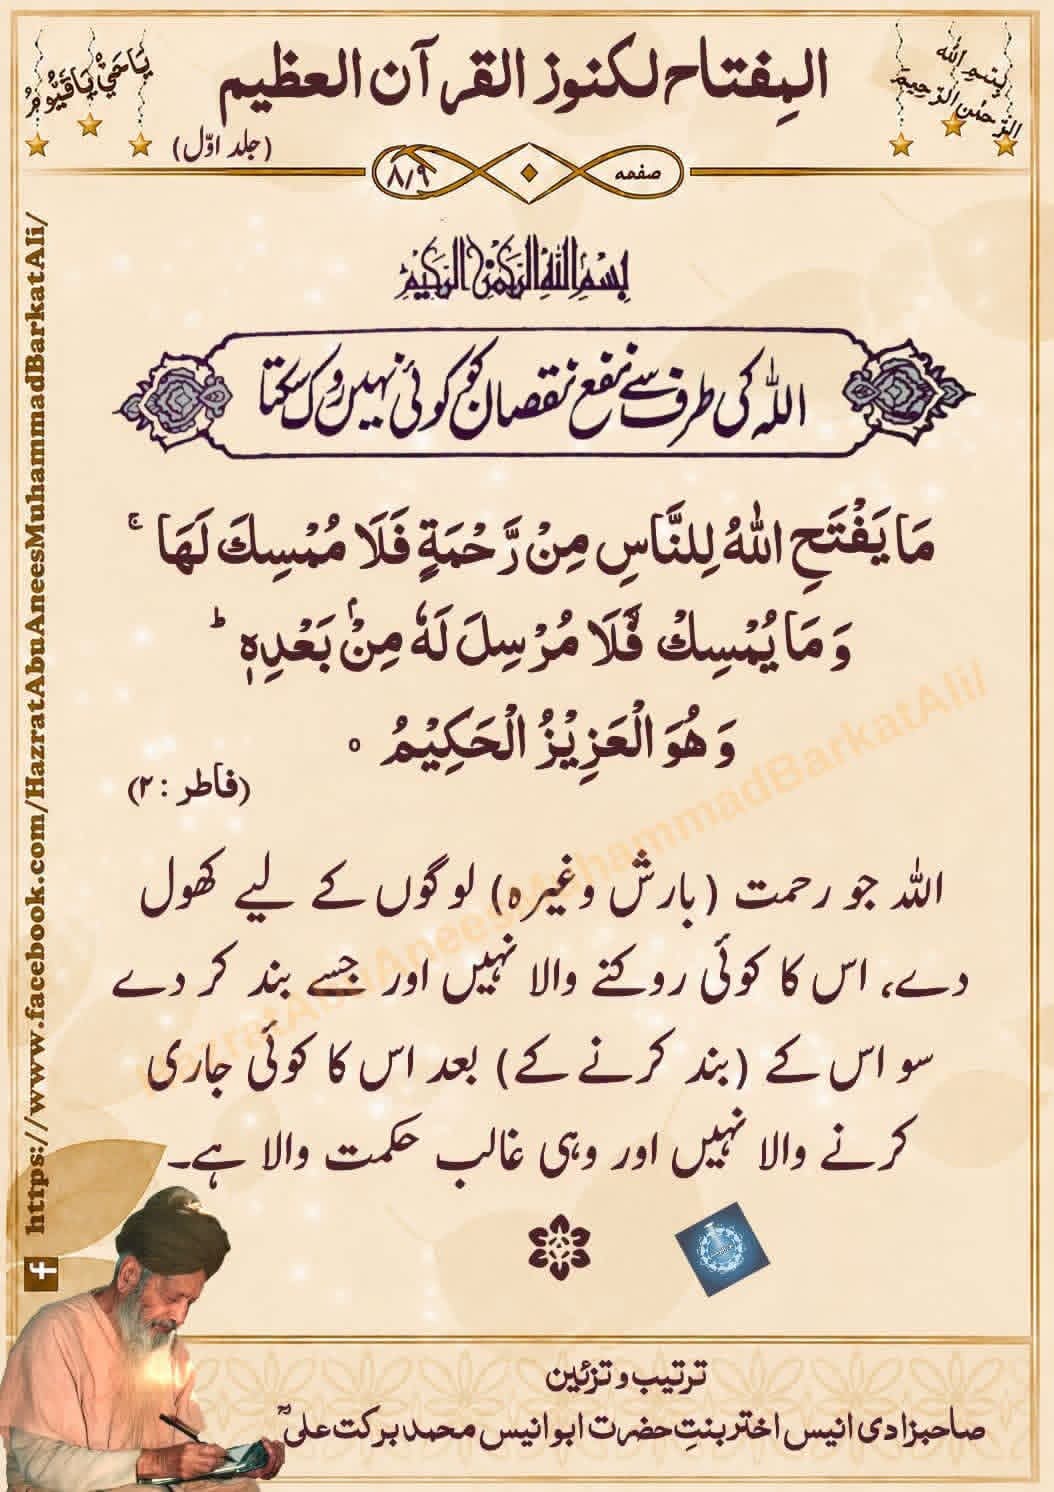 المفتاح لکنوز القرآن العظیم
بِسْمِ اللّٰهِ
الرَّحْمٰنِ الرَّحِيْمِ
يَا حَيُّ يَا قَيُّوْمُ
(جلد اوّل)
صفحہ
۸/۹
بِسْمِ اللهِ الرَّحْمٰنِ الرَّحِيْمِ
اللہ کی طرف سے نفع نقصان کو کوئی نہیں روک سکتا
مَا يَفْتَحِ اللّٰهُ لِلنَّاسِ مِنْ رَّحْمَةٍ فَلَا مُمْسِكَ لَهَا ۚ
وَ مَا يُمْسِكْ ۙ فَلَا مُرْسِلَ لَهٗ مِنْۢ بَعْدِهٖ ؕ
وَ هُوَ الْعَزِيْزُ الْحَكِيْمُ ○
(فاطر : ۲)
اللہ جو رحمت (بارش وغیرہ) لوگوں کے لیے کھول
دے، اس کا کوئی روکنے والا نہیں اور جسے بند کر دے
سو اس کے (بند کرنے کے) بعد اس کا کوئی جاری
کرنے والا نہیں اور وہی غالب حکمت والا ہے۔
ترتیب و تزئین
صاحبزادی انیس اختر بنتِ حضرت ابو انیس محمد برکت علیؒ
https://www.facebook.com/HazratAbuAneesMuhammadBarkatAli/
HazratAbuAneesMuhammadBarkatAli/